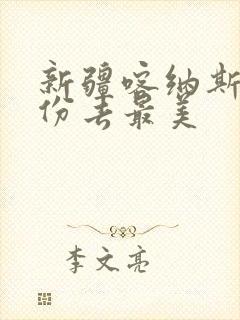 新疆喀纳斯
份去最美
李文亮